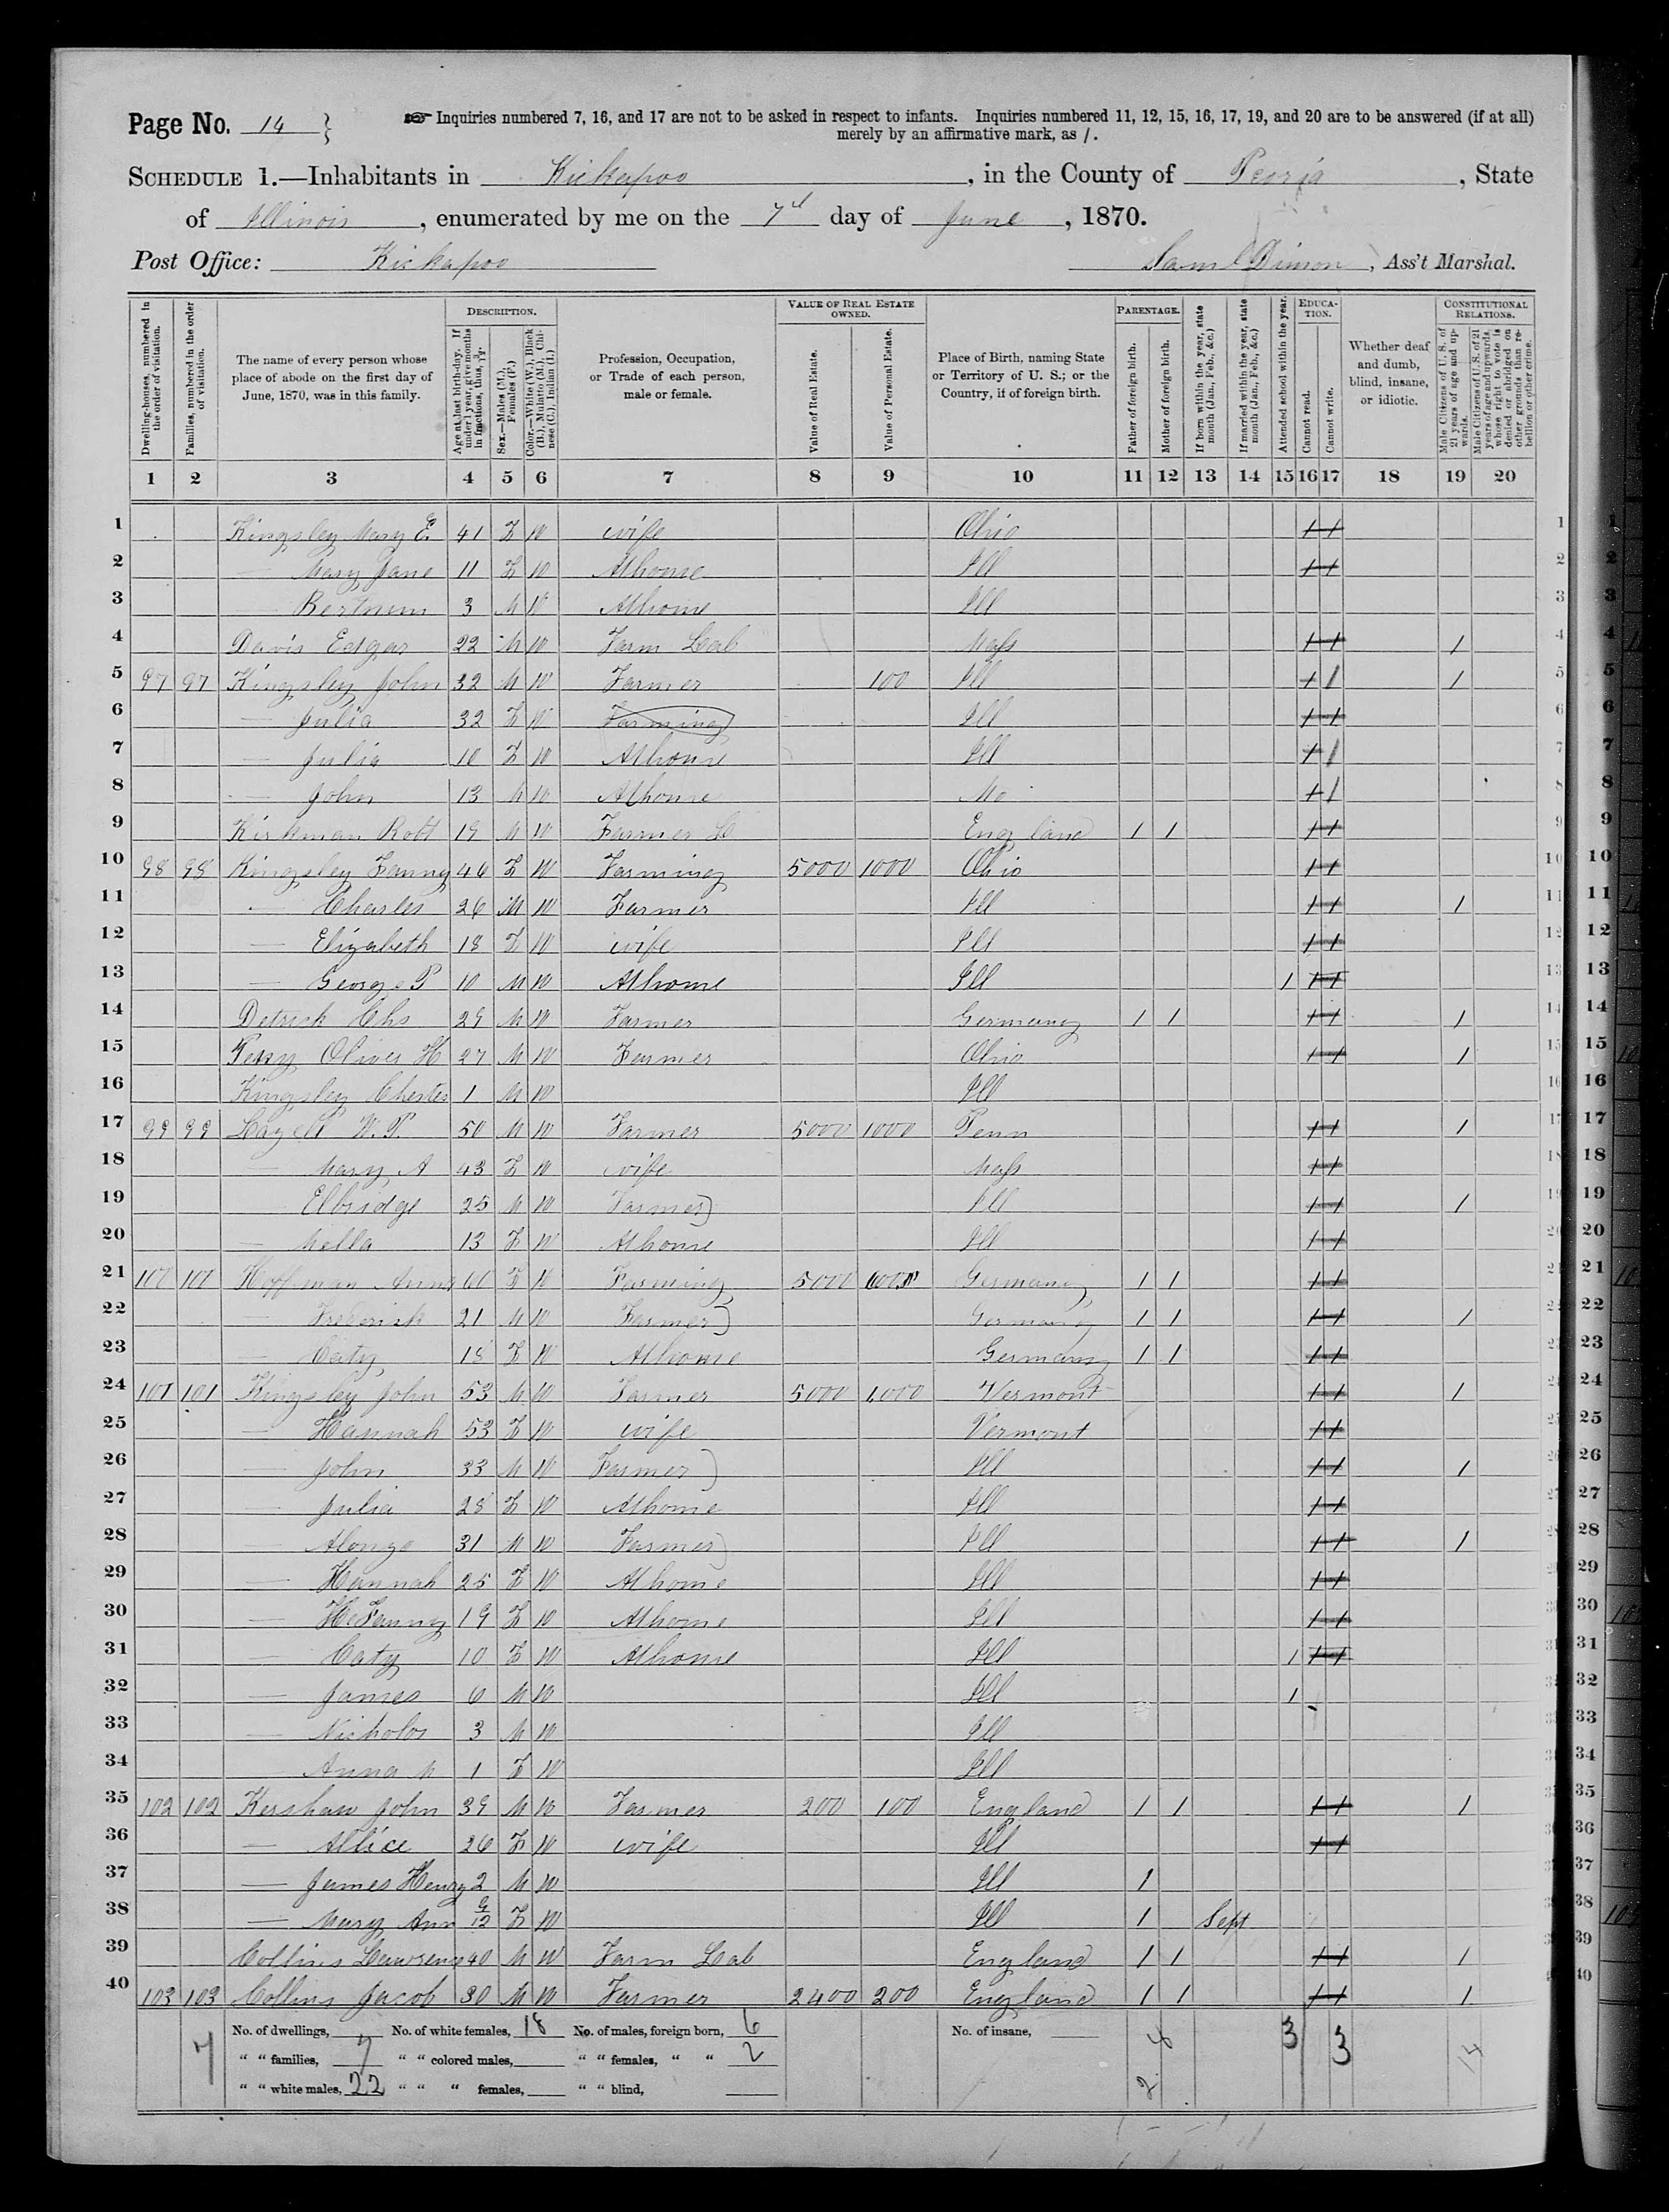 Page No. 14 } Inquiries numbered 7, 16, and 17 are not to be asked in respect to infants. Inquiries numbered 11, 12, 15, 16, 17, 19, and 20 are to be answered (if at all)
merely by an affirmative mark, as /.
SCHEDULE 1.—Inhabitants in Kickapoo, in the County of Peoria, State
of Illinois, enumerated by me on the 7d day of June, 1870.
Post Office: Kickapoo Saml Dimon, Ass't Marshal.
Dwelling-houses, numbered in the order of visitation.
Families, numbered in the order of visitation.
The name of every person whose place of abode on the first day of June, 1870, was in this family.
DESCRIPTION.
Age at last birth-day. If under 1 year, give months in fractions, thus, 3/12.
Sex.—Males (M.), Females (F.)
Color.—White (W.), Black (B.), Mulatto (M.), Chinese (C.), Indian (I.)
Profession, Occupation, or Trade of each person, male or female.
VALUE OF REAL ESTATE OWNED.
Value of Real Estate.
Value of Personal Estate.
Place of Birth, naming State or Territory of U. S.; or the Country, if of foreign birth.
PARENTAGE.
Father of foreign birth.
Mother of foreign birth.
If born within the year, state month (Jan., Feb., &c.)
If married within the year, state month (Jan., Feb., &c.)
Attended school within the year.
EDUCATION.
Cannot read.
Cannot write.
Whether deaf and dumb, blind, insane, or idiotic.
CONSTITUTIONAL RELATIONS.
Male Citizens of U. S. of 21 years of age and upwards.
Male Citizens of U. S. of 21 years of age and upwards, whose right to vote is denied or abridged on other grounds than rebellion or other crime.
1 2 3 4 5 6 7 8 9 10 11 12 13 14 15 16 17 18 19 20
1 Kingsley Mary E. 41 F W wife Ohio / /
2 — Mary Jane 11 F W At home Ill / /
3 — Bertrum 3 M W At home Ill
4 Davis Edgar 22 M W Farm Lab Mass / / /
5 97 97 Kingsley John 32 M W Farmer 100 Ill / / /
6 — Julia 32 F W Farming Ill / /
7 — Julia 10 F W At home Ill / /
8 — John 13 M W At home Mo / /
9 Kirkman Robt 19 M W Farmer England / / / /
10 98 98 Kingsley Fanny 46 F W Farming 5000 1000 Ohio / /
11 — Charles 26 M W Farmer Ill / / /
12 — Elizabeth 18 F W wife Ill / /
13 — George P 10 M W At home Ill / / /
14 Detrick Chs 29 M W Farmer Germany / / / / /
15 Perry Oliver H 27 M W Farmer Ohio / / /
16 Kingsley Chester 1 M W Ill
17 99 99 Lazell W. P. 50 M W Farmer 5000 1000 Penn / / /
18 — Mary A 43 F W wife Mass / /
19 — Elbridge 25 M W Farmer Ill / / /
20 — Mella 13 F W At home Ill / /
21 100 100 Hoffman Anna 60 F W Farming 5000 Germany / / / /
22 — Frederick 21 M W Farmer Germany / / / / /
23 — Caty 18 F W At home Germany / / / /
24 101 101 Kingsley John 53 M W Farmer 5000 1,000 Vermont / / /
25 — Hannah 53 F W wife Vermont / /
26 — John 33 M W Farmer Ill / / /
27 — Julia 28 F W At home Ill / /
28 — Alonzo 31 M W Farmer Ill / / /
29 — Hannah 25 F W At home Ill / /
30 — H. Fanny 19 F W At home Ill / /
31 — Caty 10 F W At home Ill / / /
32 — James 6 M W Ill /
33 — Nicholos 3 M W Ill
34 — Anna M 1 F W Ill
35 102 102 Kershaw John 39 M W Farmer 200 100 England / / / / /
36 — Allice 26 F W wife Ill / /
37 — James Henry 2 M W Ill /
38 — Mary Ann 9/12 F W Ill / Sept
39 Collins Lawrence 40 M W Farm Lab England / / / / /
40 103 103 Collins Jacob 30 M W Farmer 2400 200 England / / / / /
7 No. of dwellings, No. of white females, 18 No. of males, foreign born, 6 No. of insane, 3 3 14
" " families, 7 " " colored males, " " females, " " 2
" " white males, 22 " " " females, " " blind, 2